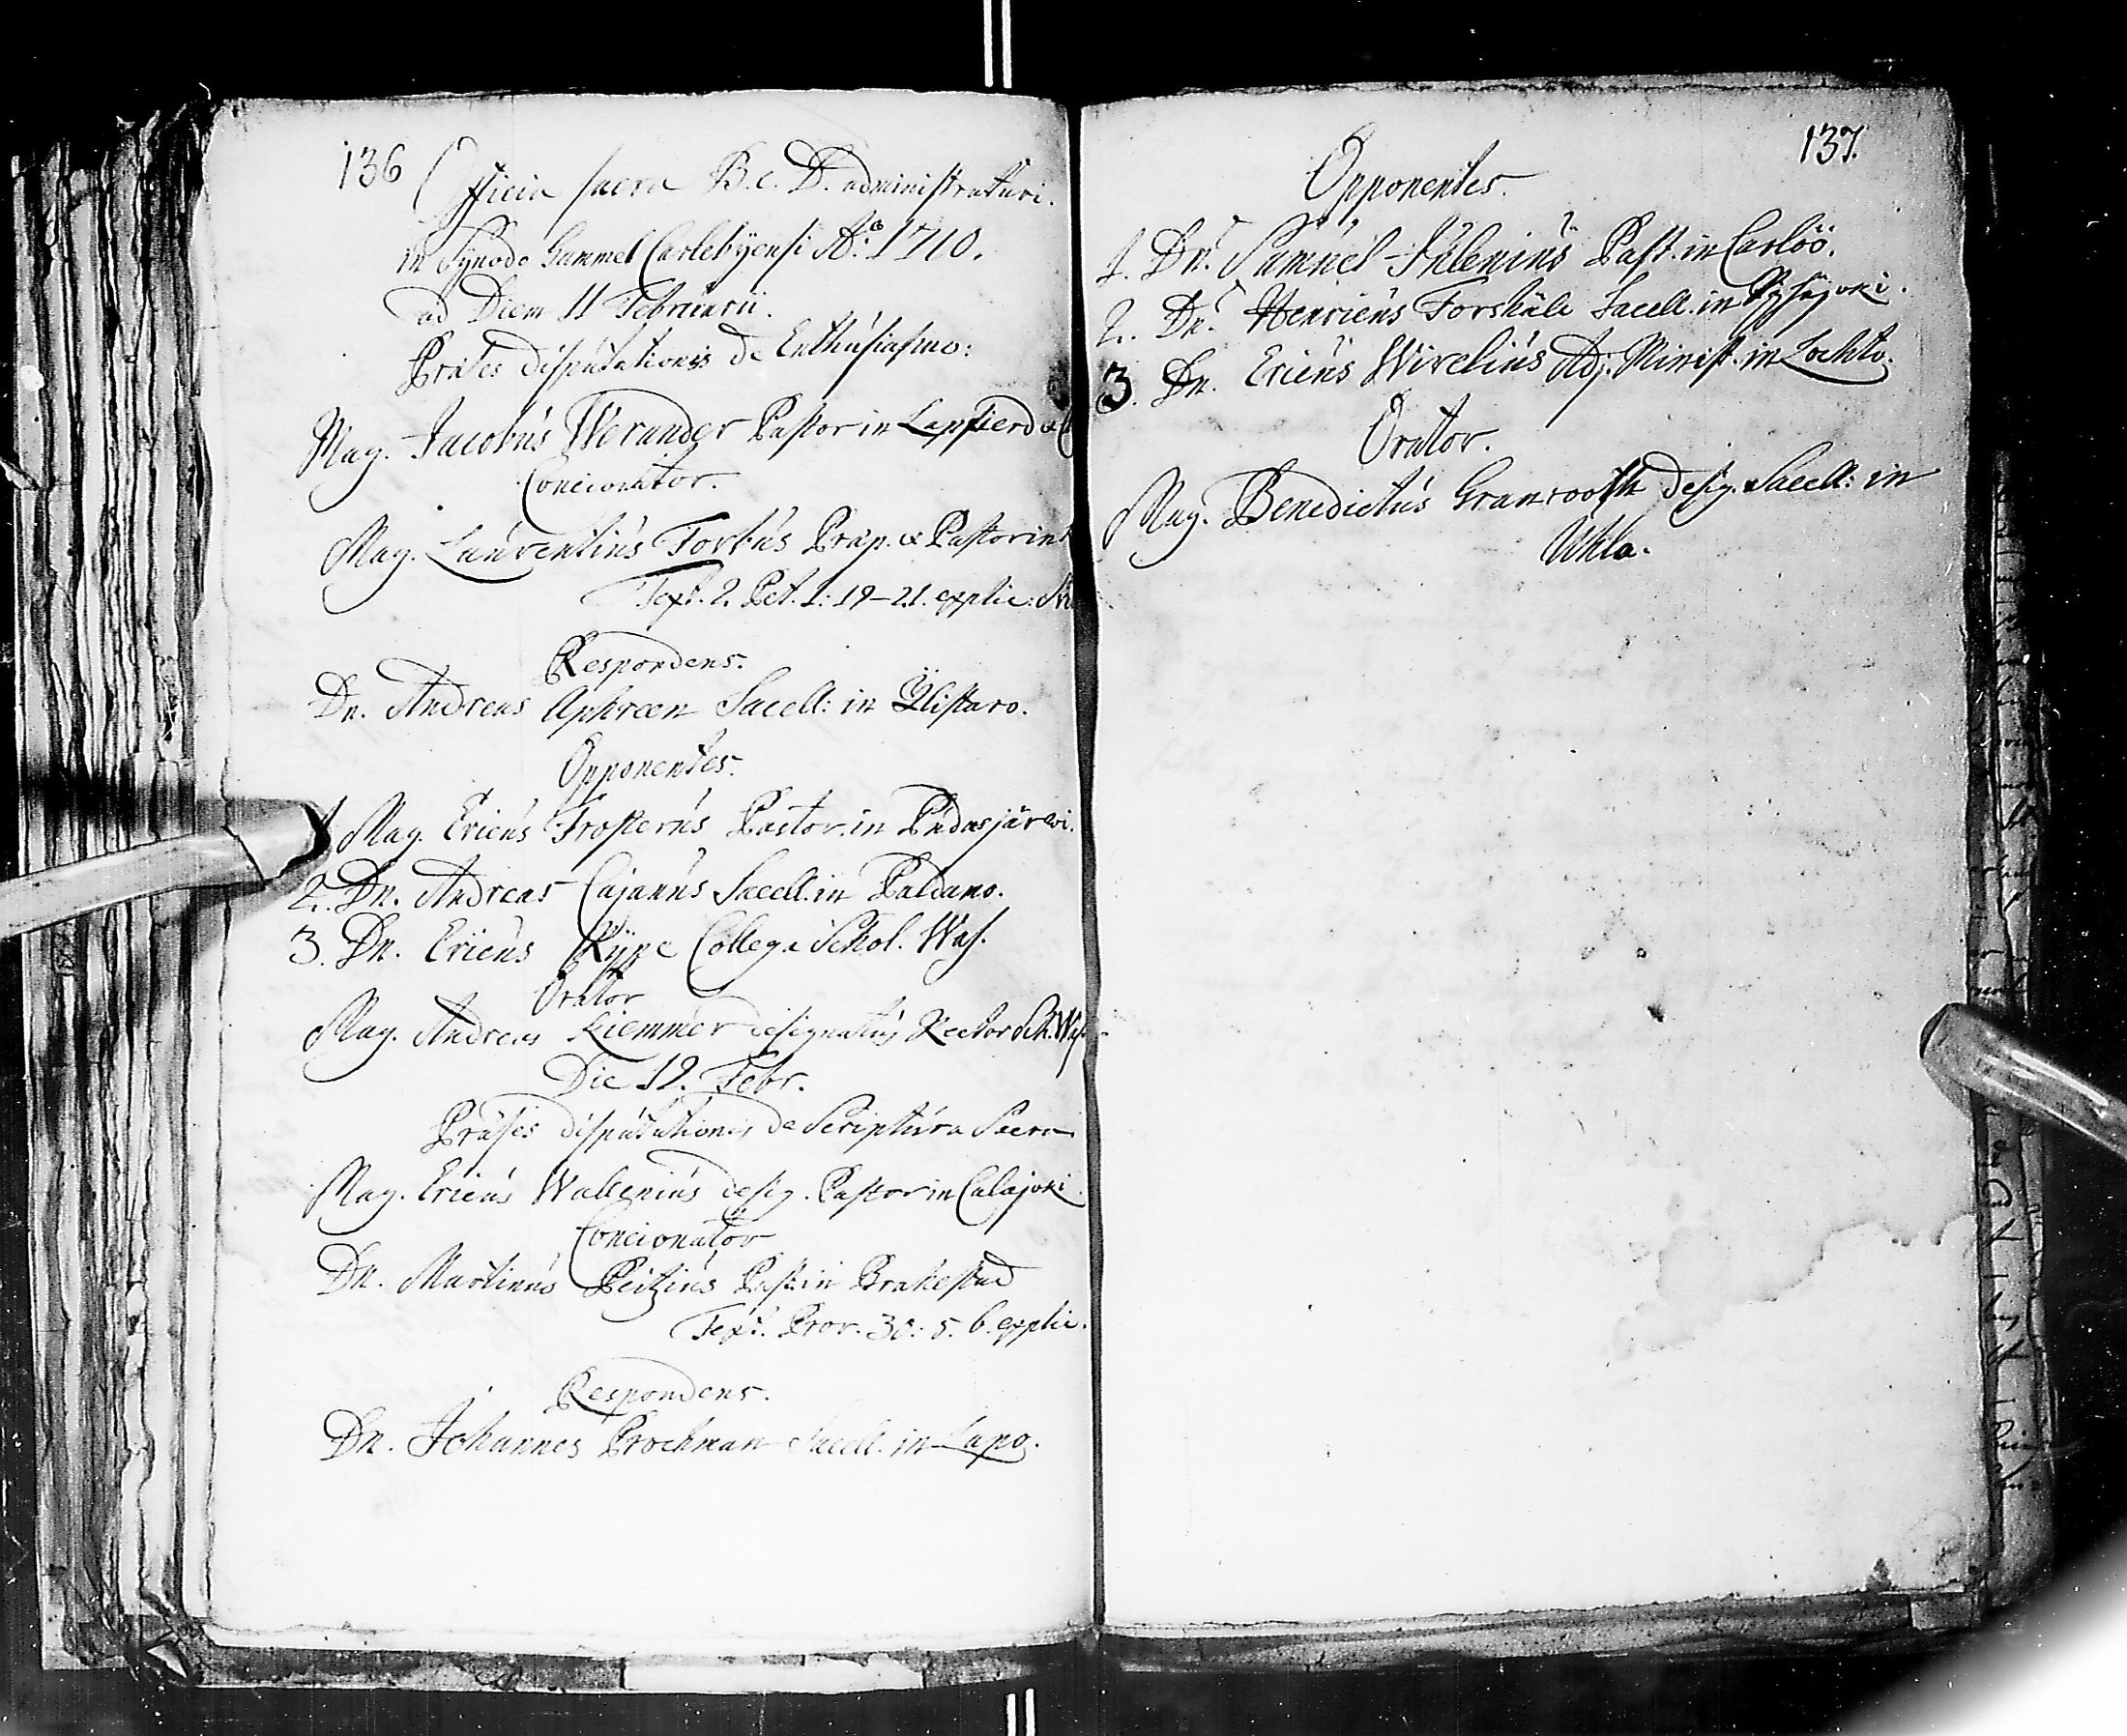 136
Officia sacra B. c. D. administraturi.
in Synodo Gammel Carlebÿensi Ao: 1710.
ad Diem 11 Februarii.
Præses disputationis de Enthusiasmo:
Mag. Jacobus Werander Pastor in Lappfierd
Concionator.
Mag. Laurentius Forbus Præp. & Pastor in
Text. 2. Pet. 1: 19-21. explic:
Respondens.
Dn. Andreas Aphreen Sacell: in Ÿlistaro.
Opponentes.
1 Mag. Ericus Frosterus Pastor in Pudasjärwi.
2. Dn. Andreas Cajanus Sacell. in Paldamo.
3. Dn. Ericus Rÿpe Collega Schol. Was.
Orator
Mag. Andreas Kiemmer designatus Rector Sch. Was.
Die 12. Febr.
Præses disputationis de Scriptura Sacra
Mag. Ericus Wallenius desig. Pastor in Calajoki.
Concionator
Dn. Martinus Peitzius Past. in Brahestad
Text. Prov. 30: 5. 6. explic.
Respondens.
Dn. Johannes Prochman Sacell. in Lapo.
137.
Opponentes.
1. Dnr. Samuel Julenius Past. in Carlöö.
2. Dnr. Henricus Forskåle Sacell. in Pyhäjoki.
3. Dn. Ericus Wirelius Adj. Minist. in Lochto.
Orator.
Mag. Benedictus Granrooth desig. Sacell: in
Uhla.